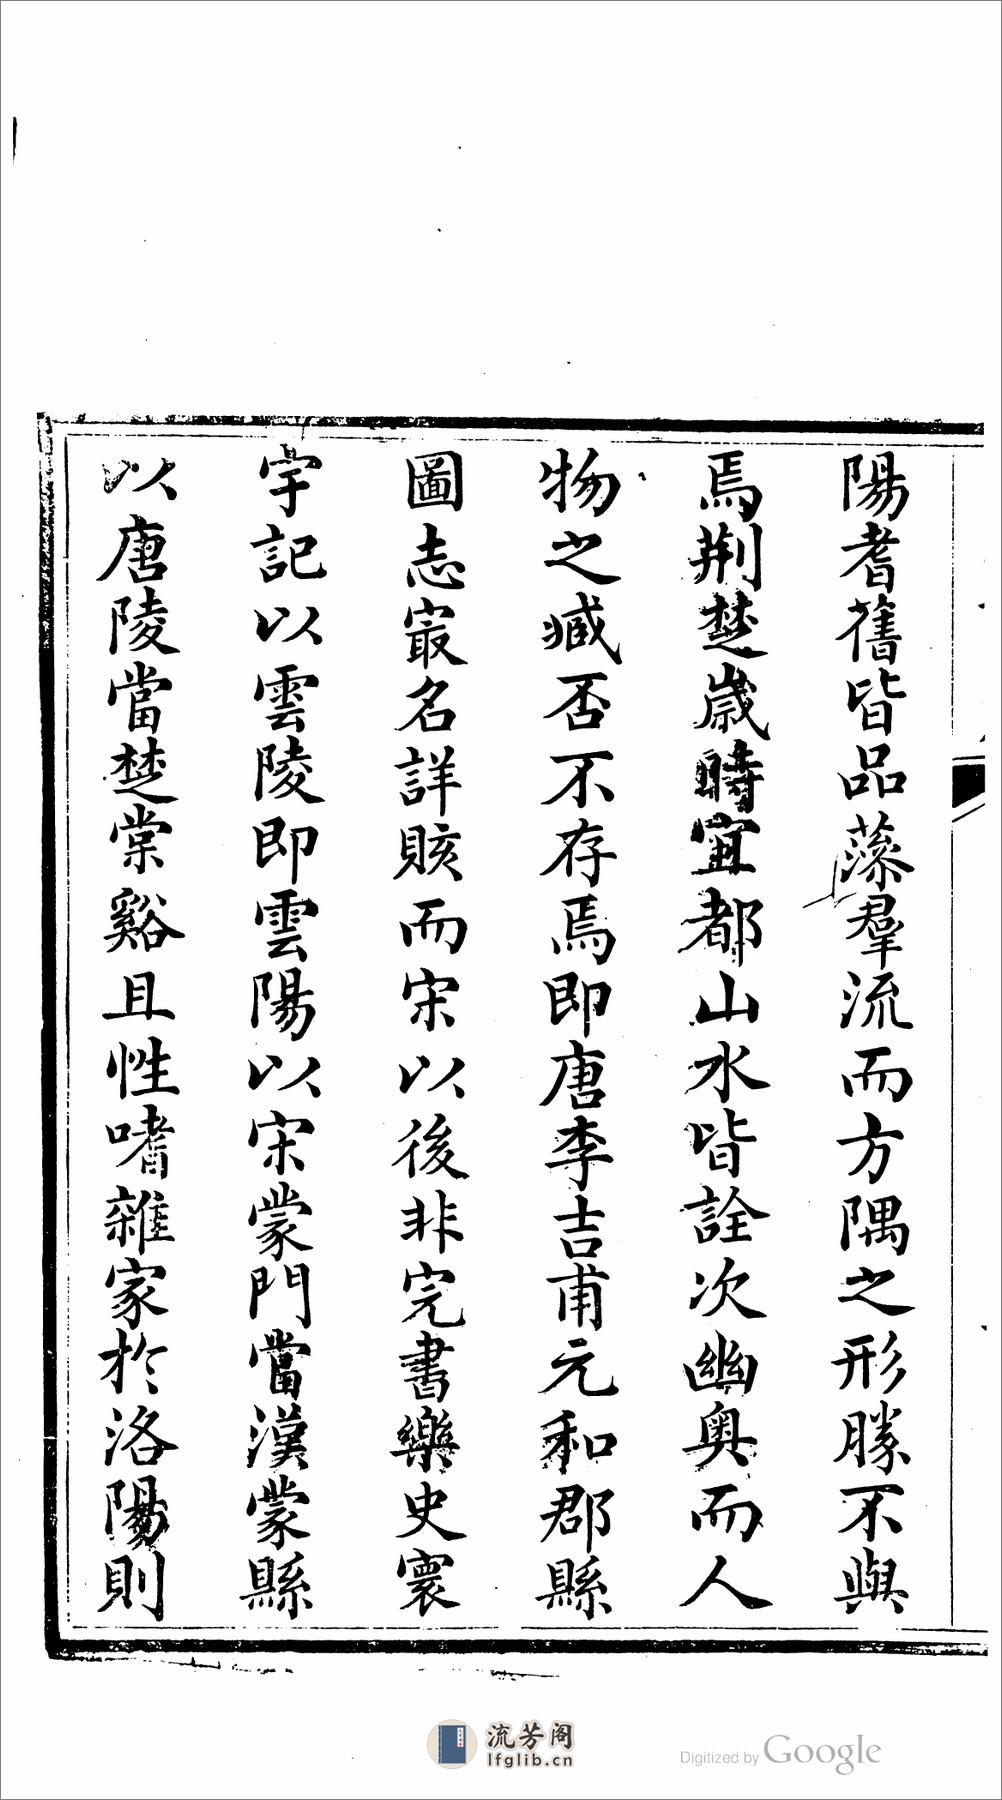 陽耆舊皆品藻羣流而方隅之形勝不與
焉荆楚歲時宜都山水皆詮次幽奥而人
物之臧否不存焉即唐李吉甫元和郡縣
圖志冣名詳賅而宋以後非完書樂史寰
宇記以雲陵即雲陽以宋蒙門當漢蒙縣
以唐陵當楚棠谿且性嗜雜家於洛陽則
流芳阁
lfglib.cn
Digitized by Google